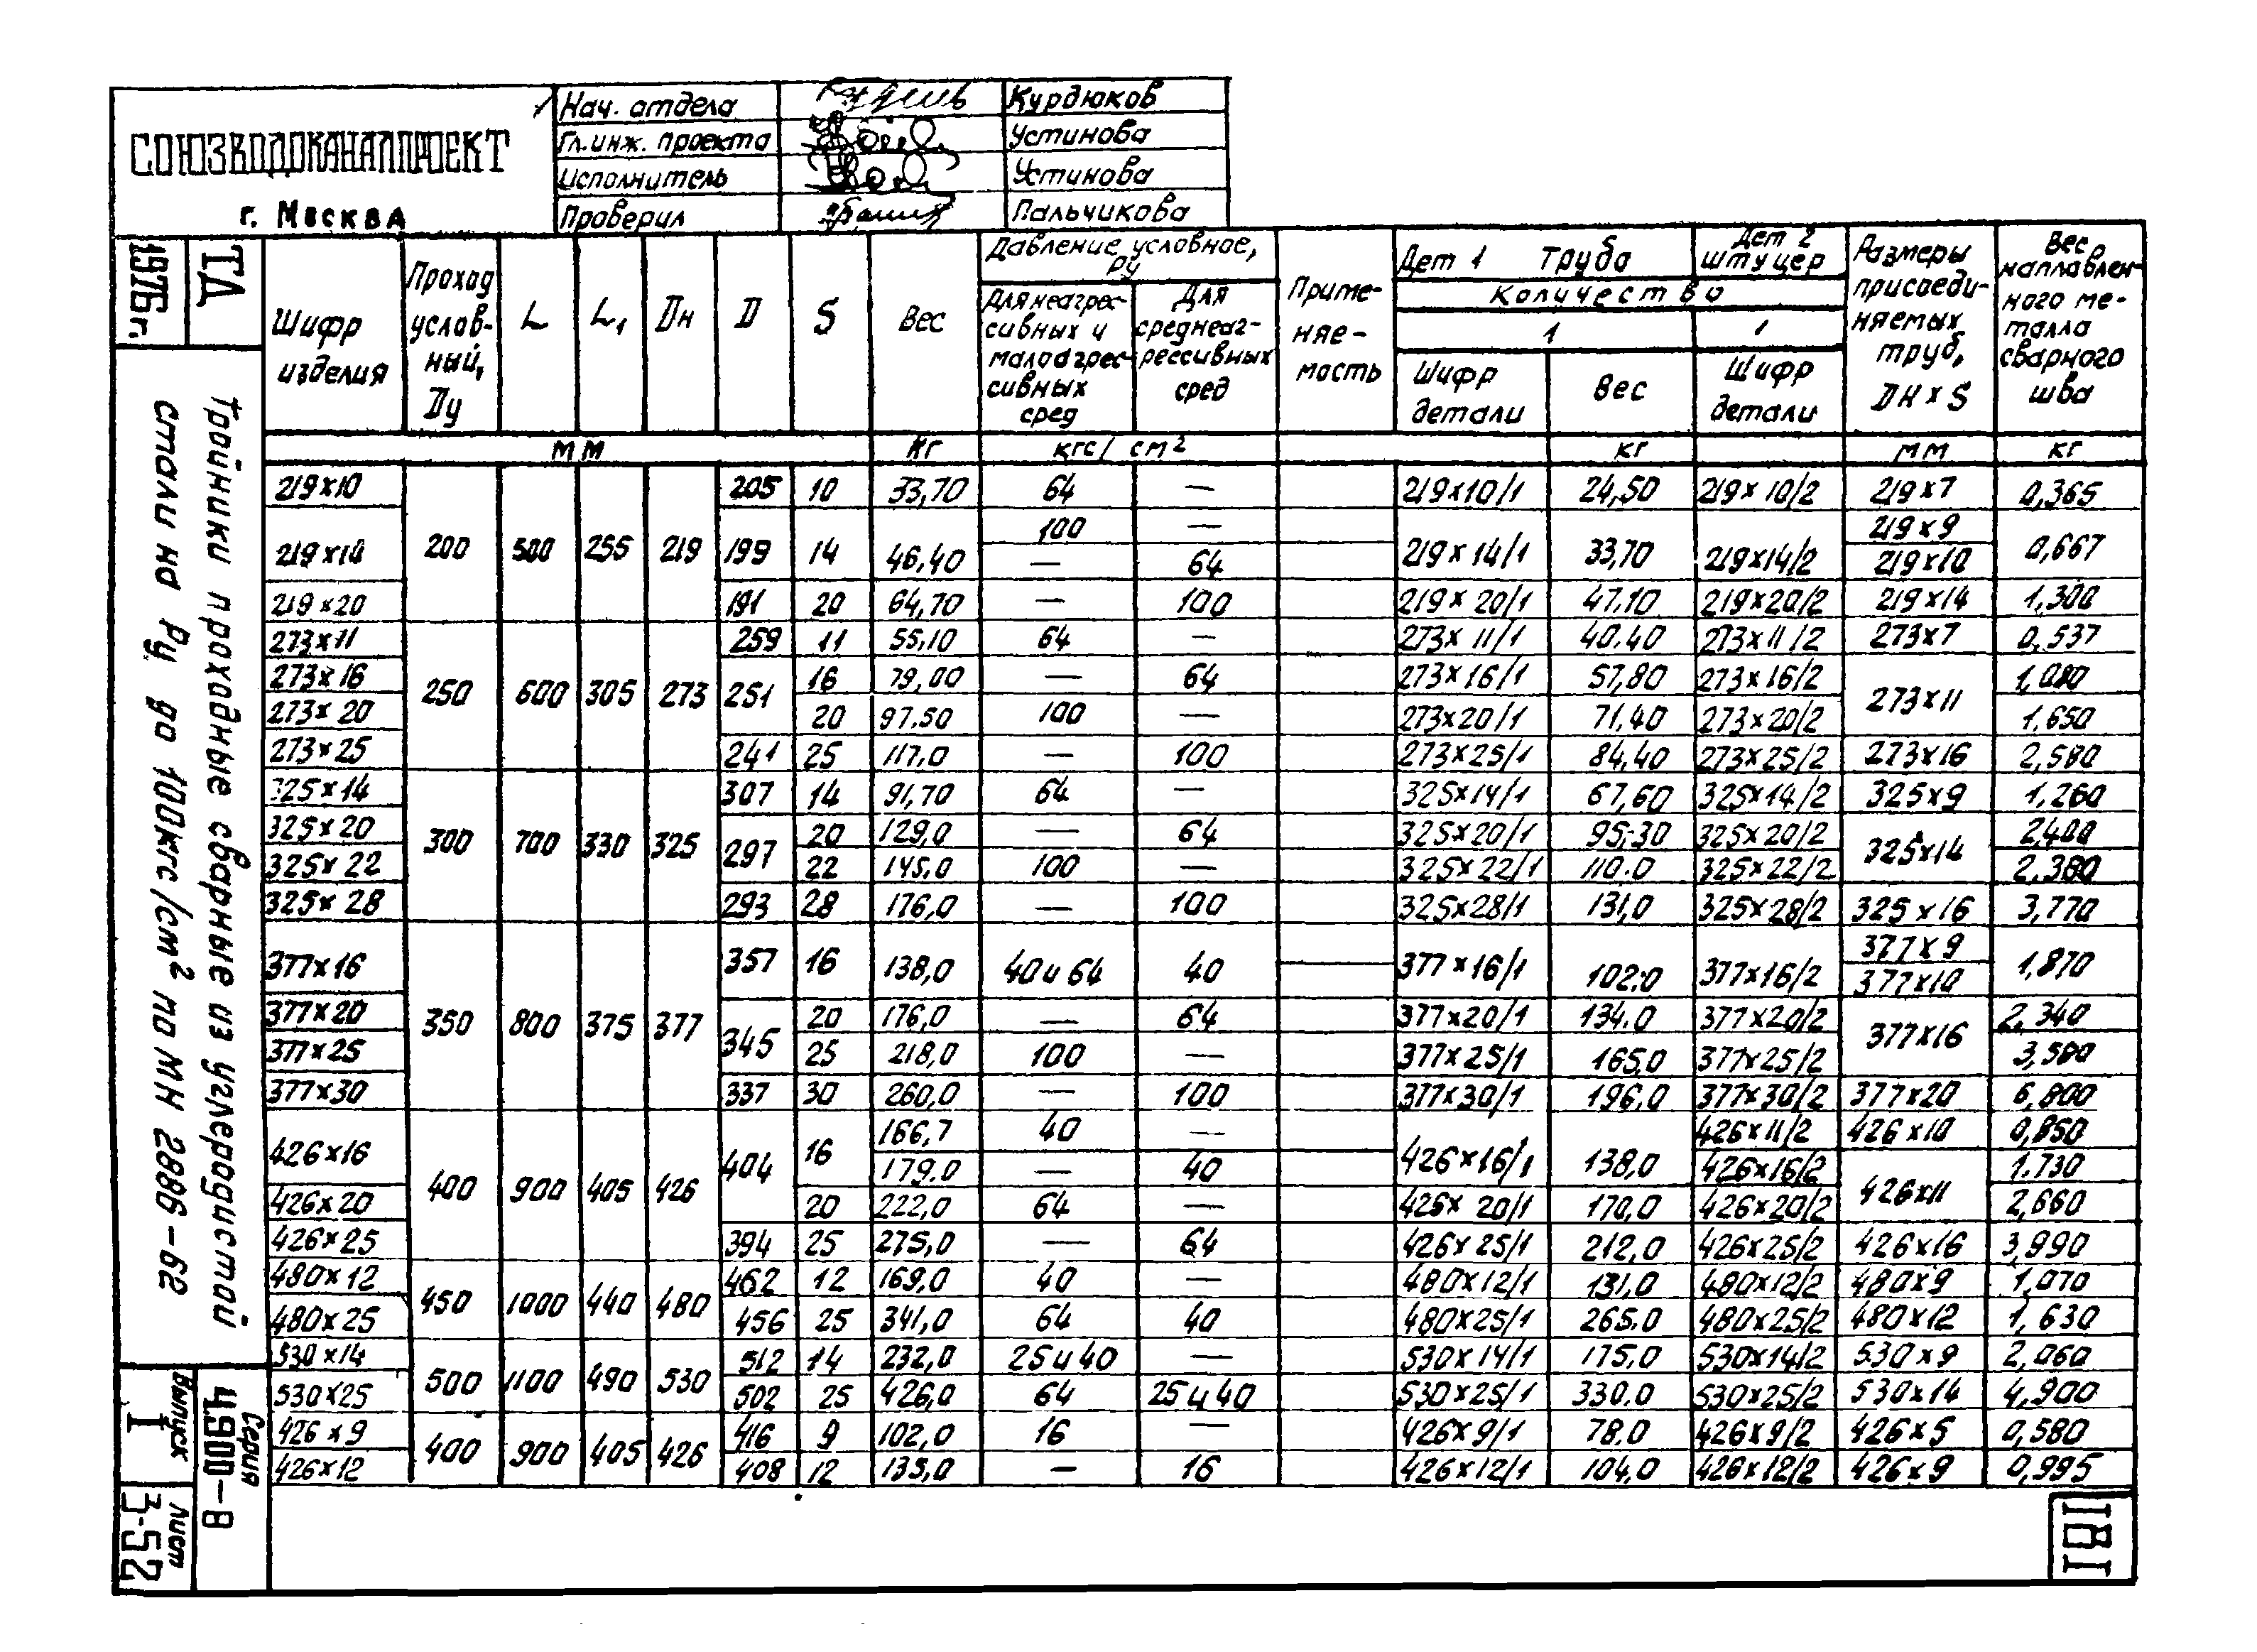 СОЮЗВОДОКАНАЛПРОЕКТ
г. Москва
Нач. отдела Курдюков
Гл. инж. проекта Устинова
Исполнитель Устинова
Проверил Пальчикова
ТД
1976г.
Тройники проходные сварные из углеродистой
стали на Ру до 100кгс/см² по МН 2886-62
Серия
4.900-8
Выпуск
I
Лист
3-52
Шифр изделия
Проход условный, Ду
L
L₁
Дн
D
S
Вес
Давление условное, Ру
Для неагрессивных и малоагрессивных сред
Для среднеагрессивных сред
Применяемость
Дет 1 Труба
Дет 2 штуцер
Количество
1 1
Шифр детали
Вес
Шифр детали
Размеры присоединяемых труб, Дн х S
Вес наплавленного металла сварного шва
мм кг кгс/см² кг мм кг
219х10 205 10 33,70 64 — 219х10/1 24,50 219х10/2 219х7 0,365
219х14 200 500 255 219 199 14 46,40 100 — 219х14/1 33,70 219х14/2 219х9 0,667
— 64 219х10
219х20 191 20 64,70 — 100 219х20/1 47.10 219х20/2 219х14 1,300
273х11 259 11 55,10 64 — 273х11/1 40.40 273х11/2 273х7 0,537
273х16 250 600 305 273 251 16 79,00 — 64 273х16/1 57,80 273х16/2 273х11 1,080
273х20 20 97.50 100 — 273х20/1 71,40 273х20/2 1,650
273х25 241 25 117.0 — 100 273х25/1 84,40 273х25/2 273х16 2,580
325х14 307 14 91,70 64 — 325х14/1 67,60 325х14/2 325х9 1,260
325х20 300 700 330 325 297 20 129,0 — 64 325х20/1 95,30 325х20/2 325х14 2,400
325х22 22 145,0 100 — 325х22/1 110.0 325х22/2 2,380
325х28 293 28 176,0 — 100 325х28/1 131,0 325х28/2 325х16 3,770
377х16 357 16 138,0 40 и 64 40 377х16/1 102.0 377х16/2 377х9 1,870
377х10
377х20 350 800 375 377 345 20 176,0 — 64 377х20/1 134.0 377х20/2 377х16 2,340
377х25 25 218,0 100 — 377х25/1 165,0 377х25/2 3,580
377х30 337 30 260,0 — 100 377х30/1 196,0 377х30/2 377х20 6,800
426х16 404 16 166,7 40 — 426х16/1 138,0 426х11/2 426х10 0,850
179.0 — 40 426х16/2 426х11 1.730
426х20 400 900 405 426 20 222,0 64 — 426х20/1 170,0 426х20/2 2,660
426х25 394 25 275,0 — 64 426х25/1 212,0 426х25/2 426х16 3,990
480х12 450 1000 440 480 462 12 169,0 40 — 480х12/1 131,0 480х12/2 480х9 1,070
480х25 456 25 341,0 64 40 480х25/1 265.0 480х25/2 480х12 1,630
530х14 500 1100 490 530 512 14 232,0 25 и 40 — 530х14/1 175.0 530х14/2 530х9 2,060
530х25 502 25 426,0 64 25 и 40 530х25/1 330.0 530х25/2 530х14 4,900
426х9 400 900 405 426 416 9 102,0 16 — 426х9/1 78.0 426х9/2 426х5 0,580
426х12 408 12 135,0 — 16 426х12/1 104,0 426х12/2 426х9 0,995
181